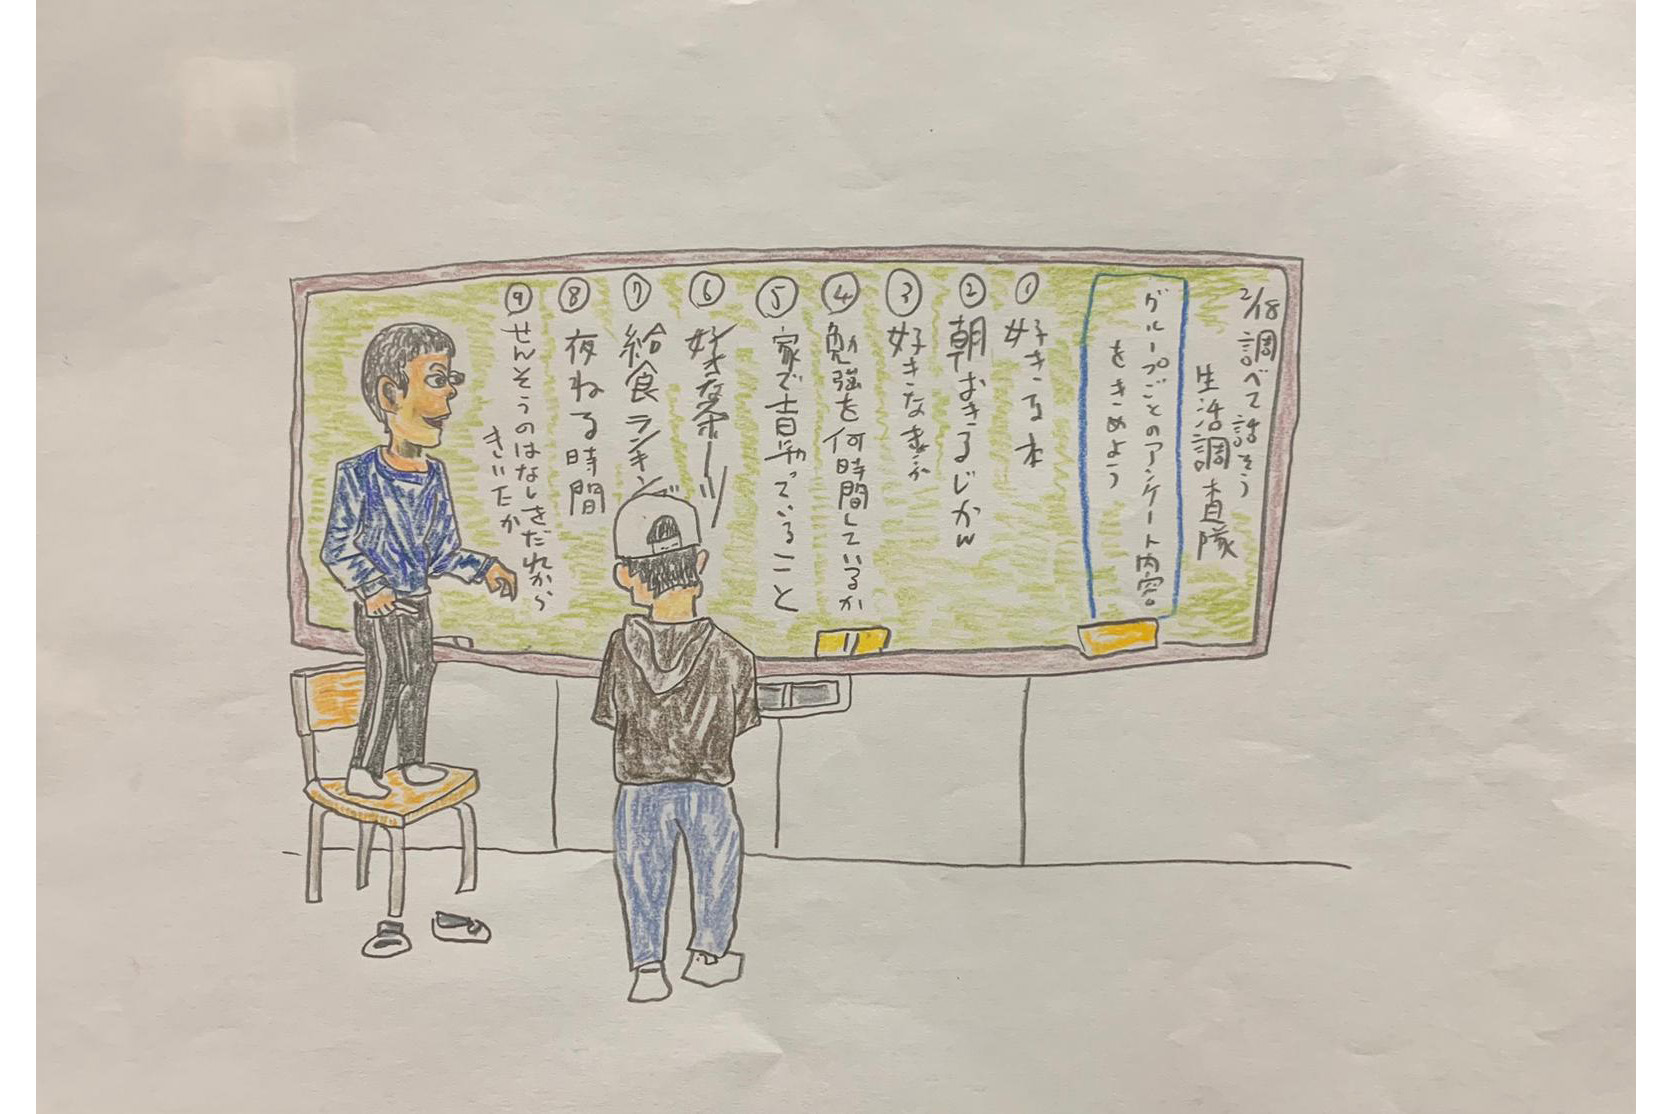 2/18 調べて話そう
生活調査隊
グループごとのアンケート内容
をきめよう
① 好きな本
② 朝おきるじかん
③ 好きな
④ 勉強を何時間しているか
⑤ 家で っていること
⑥ 好きな
⑦ 給食ランキング
⑧ 夜ねる時間
⑨ せんそうのはなしをだれから
きいたか